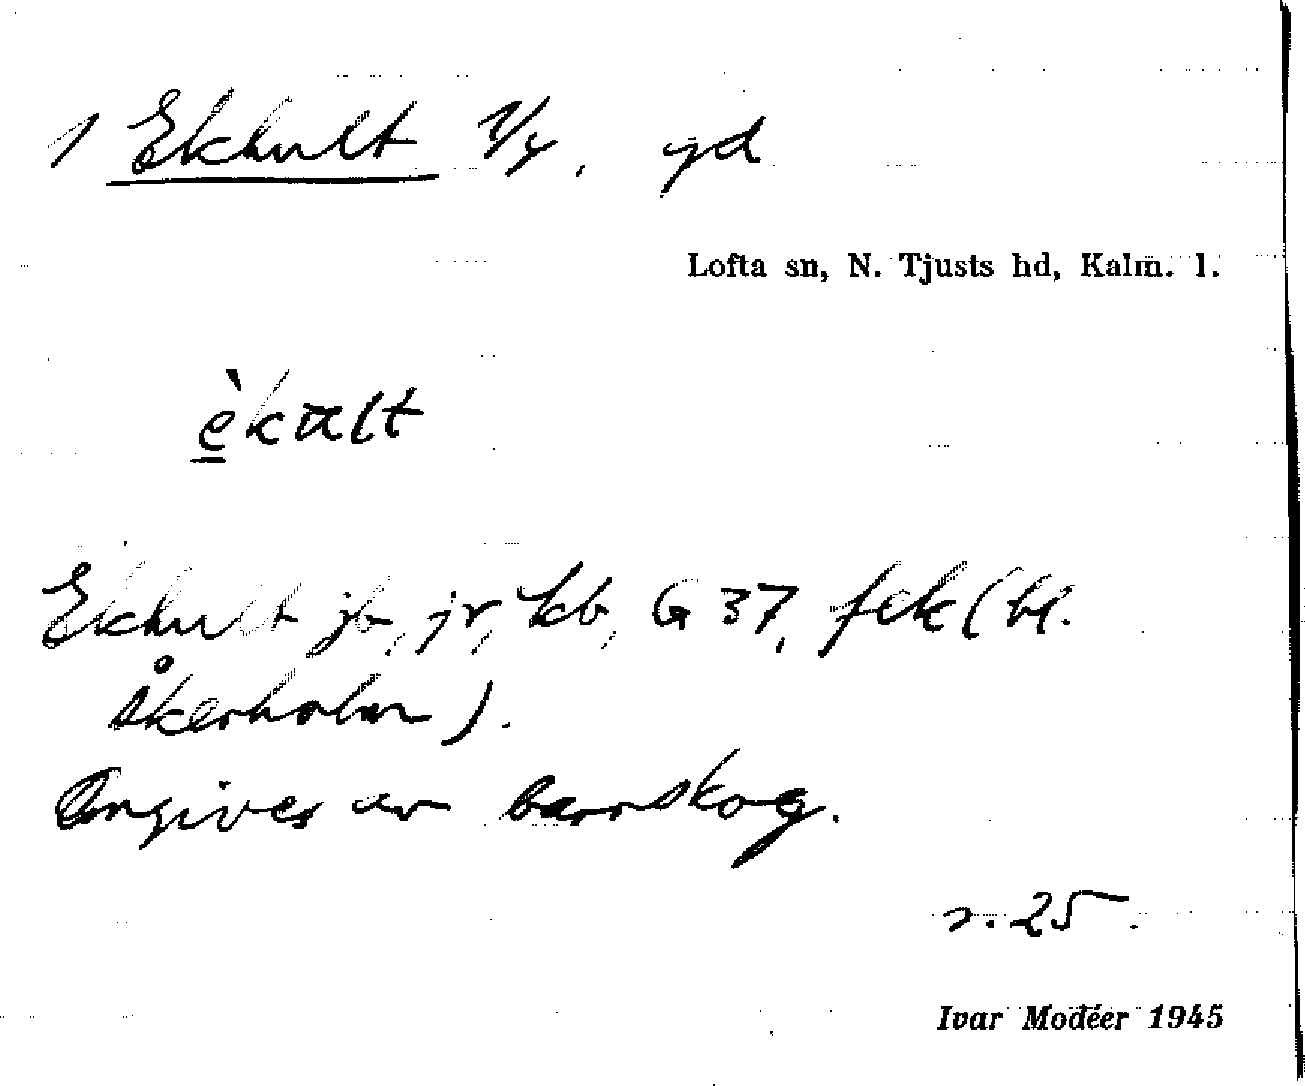 1 Ekhult 1/4, gd
Lofta sn, N. Tjusts hd, Kalm. l.
èkult
Ekhult jb, jr, kb, G 37, fek (bl.
Åkerholm).
Omgives av barrskog.
s. 25.
Ivar Modéer 1945